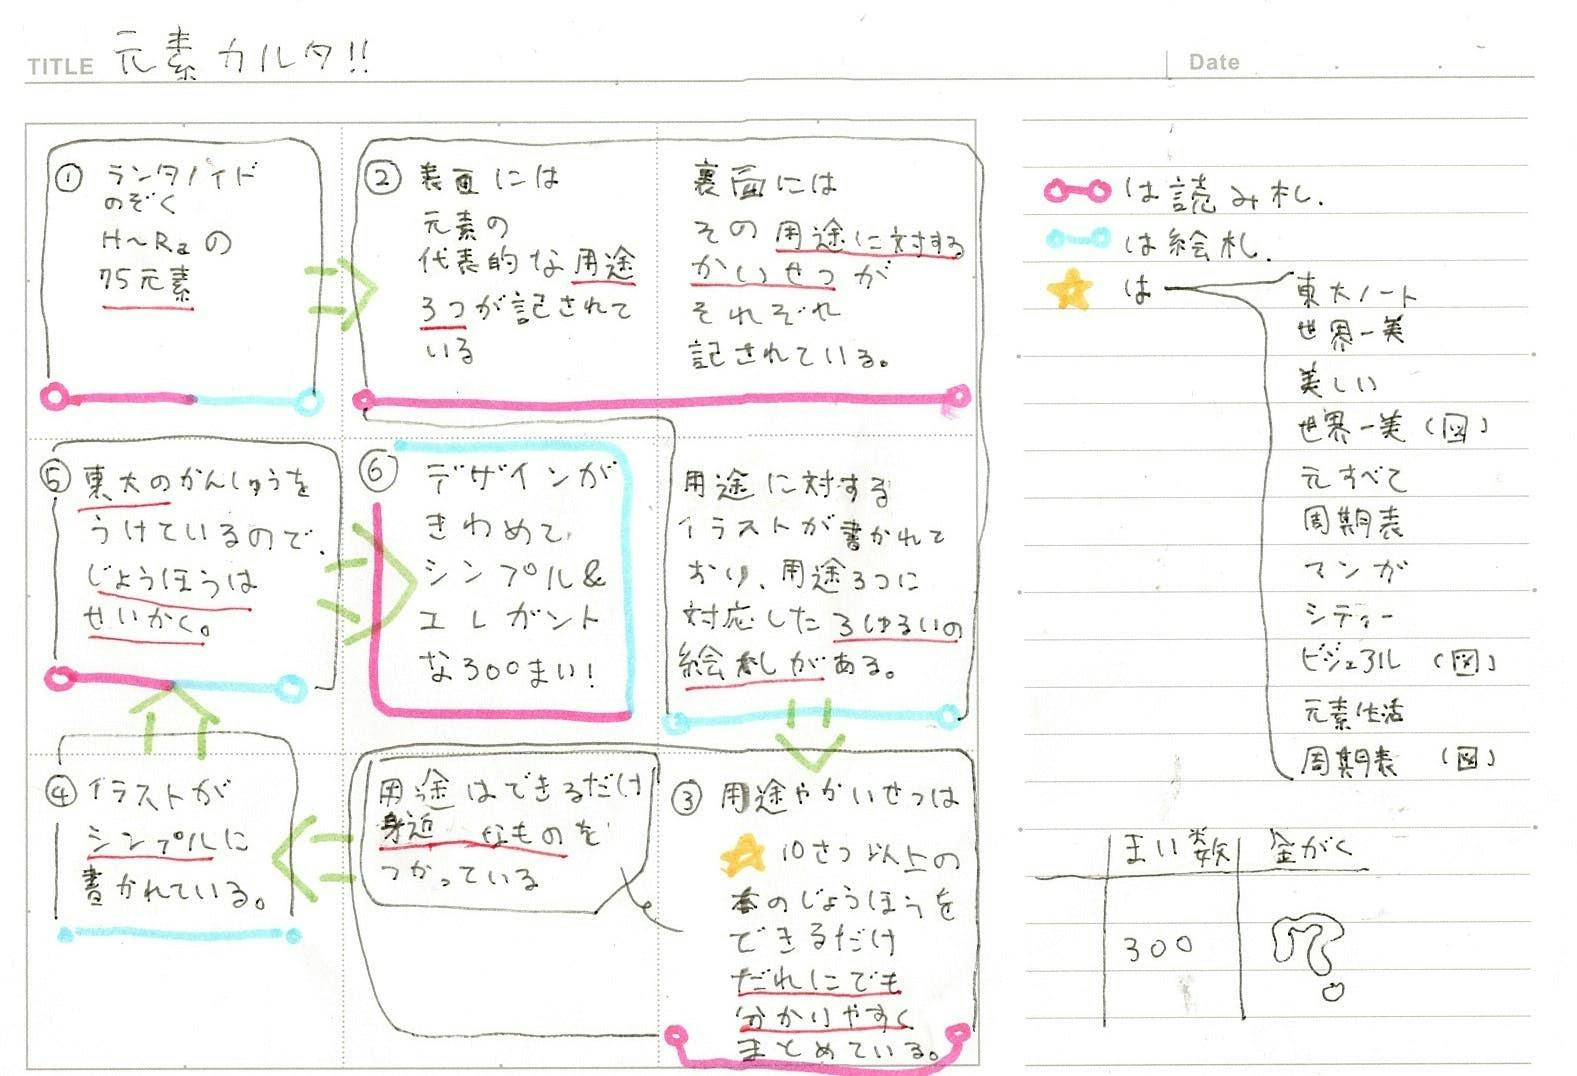 TITLE 元素カルタ!!
Date
① ランタノイド
のぞく
H~Raの
75元素
② 表面には
元素の
代表的な用途
3つが記されて
いる
裏面には
その用途に対する
かいせつが
それぞれ
記されている。
用途に対する
イラストが書かれて
おり、用途3つに
対応した3しゅるいの
絵札がある。
③ 用途やかいせつは
★ 10さつ以上の
本のじょうほうを
できるだけ
だれにでも
分かりやすく
まとめている。
用途はできるだけ
身近なものを
つかっている
④ イラストが
シンプルに
書かれている。
⑤ 東大のかんしゅうを
うけているので、
じょうほうは
せいかく。
⑥ デザインが
きわめて、
シンプル&
エレガント
な300まい!
は読み札.
は絵札.
★ は
東大ノート
世界一美
美しい
世界一美(図)
元すべて
周期表
マンガ
シティー
ビジュアル(図)
元素生活
周期表(図)
まい数 金がく
300 ?